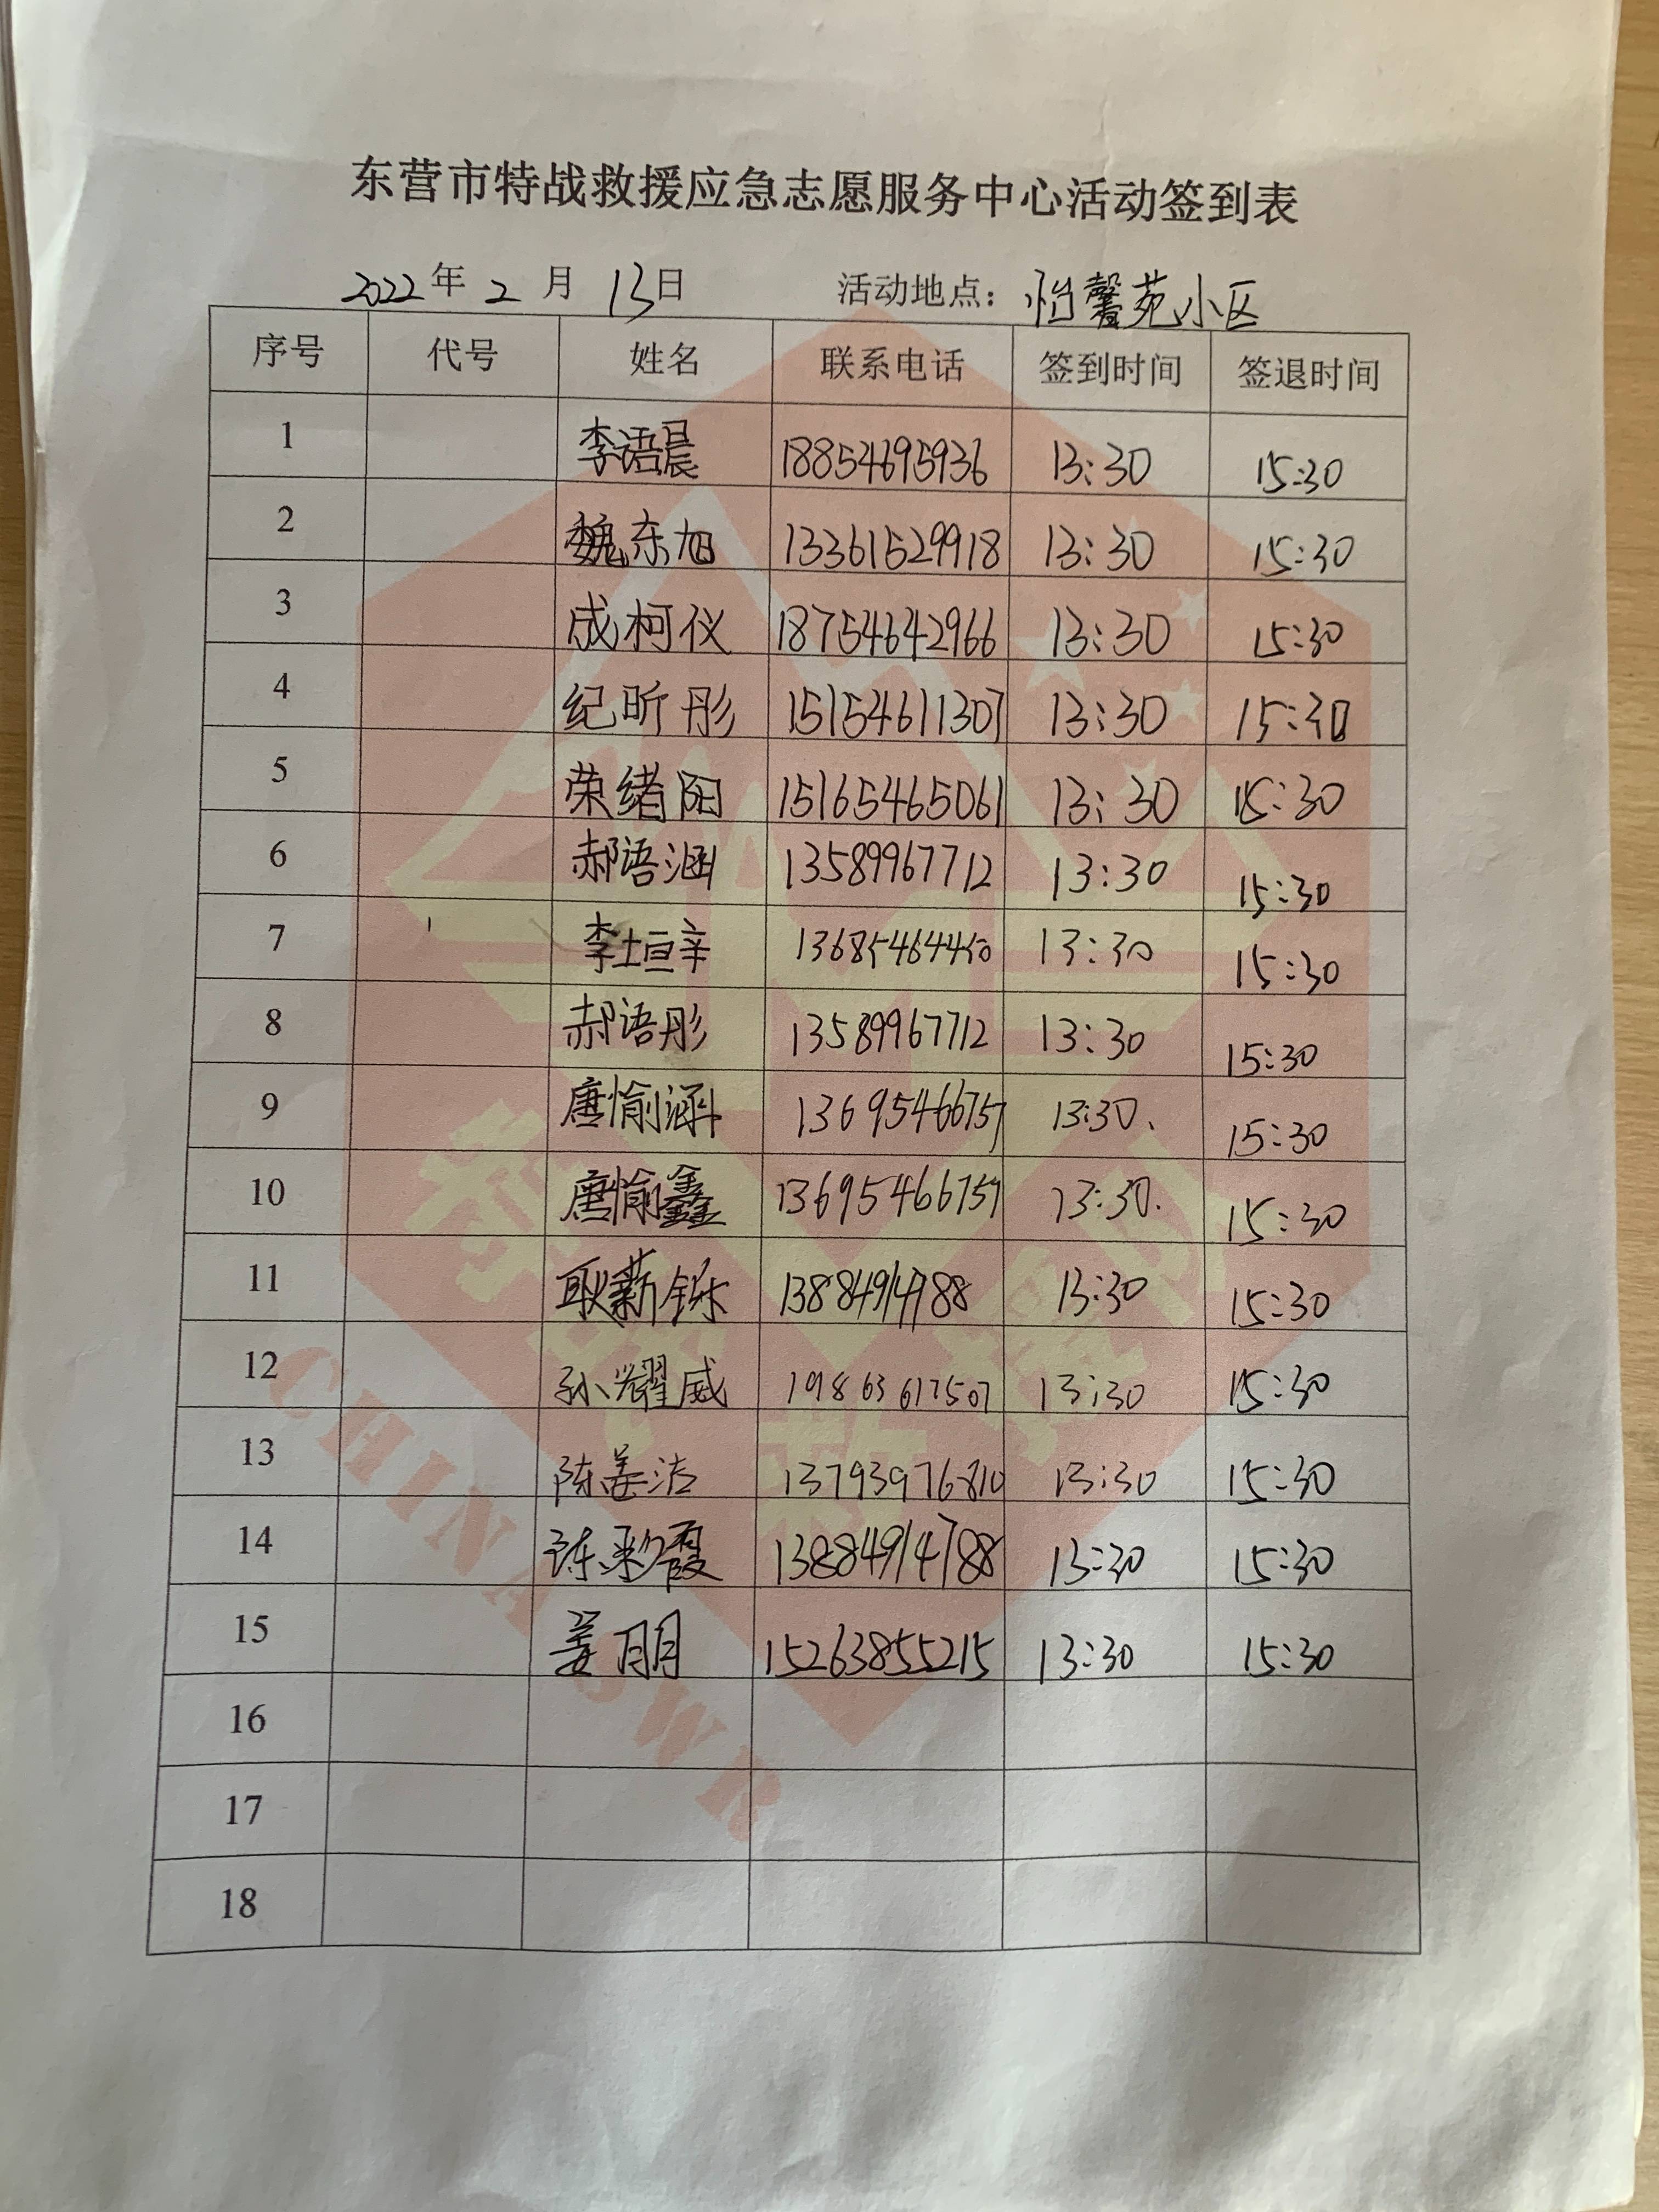 东营市特战救援应急志愿服务中心活动签到表
2022年 2 月 13日 活动地点：怡馨苑小区
序号 代号 姓名 联系电话 签到时间 签退时间
1 李语晨 18854695936 13:30 15:30
2 魏东旭 13361529918 13:30 15:30
3 成柯仪 18754642966 13:30 15:30
4 纪昕彤 15154611307 13:30 15:30
5 荣绪阳 15165465061 13:30 15:30
6 郝语涵 13589967712 13:30 15:30
7 李垣辛 13:30 15:30
8 郝语彤 13589967712 13:30 15:30
9 唐愉涵 13695466757 13:30. 15:30
10 唐愉鑫 13695466757 13:30. 15:30
11 耿薪铄 13884914788 13:30 15:30
12 孙耀威 19863617507 13:30 15:30
13 陈姜洁 13793976810 13:30 15:30
14 陈彩霞 13884914788 13:30 15:30
15 姜明月 15263855215 13:30 15:30
16
17
18
CHINA SWR